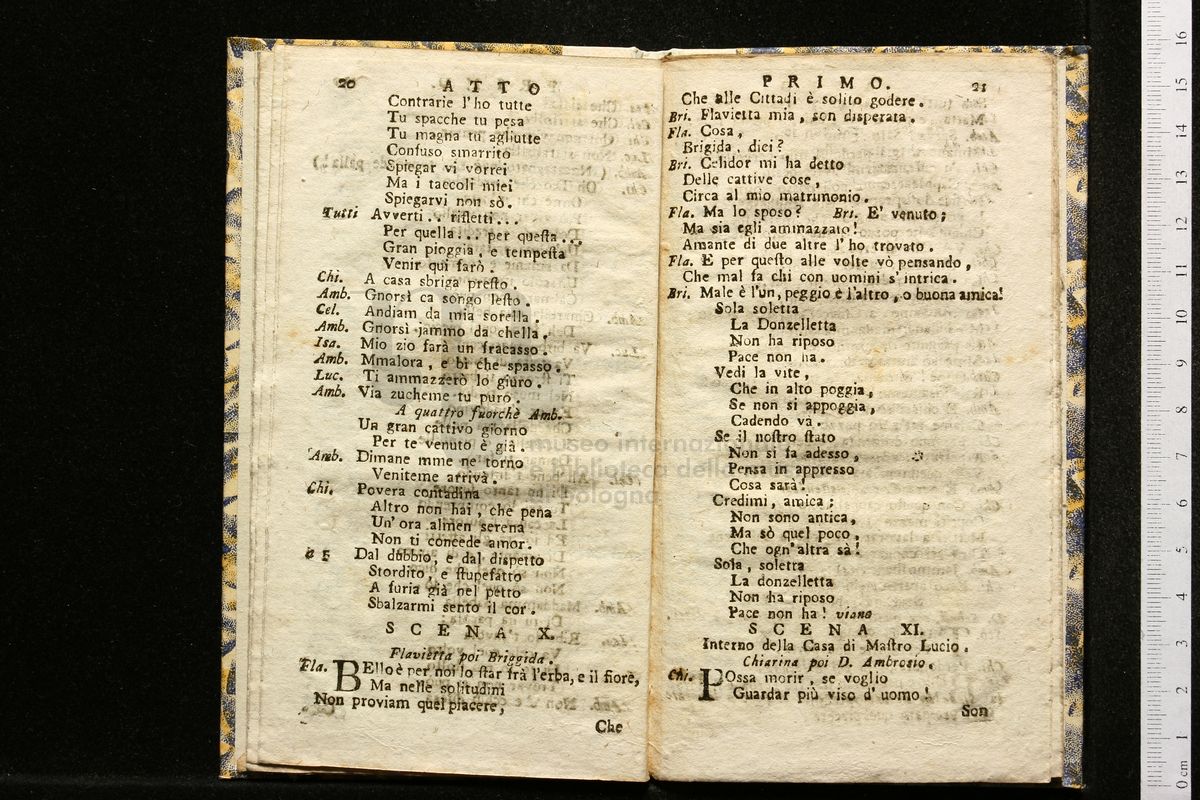 20 ATTO
Contrarie l'ho tutte
Tu spacche tu pesa
Tu magna tu agliutte
Confuso smarrito
Spiegar vi vorrei
Ma i taccoli miei
Spiegarvi non sò.
Tutti Avverti.. rifletti...
Per quella!.. per questa...
Gran pioggia, e tempesta
Venir qui farò.
Chi. A casa sbriga presto.
Amb. Gnorsì ca songo lesto.
Cel. Andiam da mia sorella.
Amb. Gnorsì jammo da chella.
Isa. Mio zio farà un fracasso.
Amb. Mmalora, e bì che spasso.
Luc. Ti ammazzerò lo giuro.
Amb. Via zucheme tu puro.
A quattro fuorchè Amb.
Un gran cattivo giorno
Per te venuto è già.
Amb. Dimane mme ne torno
Veniteme arrivà.
Chi. Povera contadina
Altro non hai, che pena
Un'ora almen serena
Non ti concede amor.
a 5 Dal dubbio, e dal dispetto
Stordito, e stupefatto
A furia già nel petto
Sbalzarmi sento il cor.
SCENA X.
Flavietta poi Briggida.
Fla. BEllo è per noi lo star frà l'erba, e il fiore,
Ma nelle solitudini
Non proviam quel piacere,
Che
PRIMO. 21
Che alle Cittadi è solito godere.
Bri. Flavietta mia, son disperata.
Fla. Cosa,
Brigida, dici?
Bri. Celidor mi ha detto
Delle cattive cose,
Circa al mio matrimonio.
Fla. Ma lo sposo? Bri. E' venuto;
Ma sia egli ammazzato!
Amante di due altre l'ho trovato.
Fla. E per questo alle volte vò pensando,
Che mal fa chi con uomini s'intrica.
Bri. Male è l'un, peggio è l'altro, o buona amica!
Sola soletta
La Donzelletta
Non ha riposo
Pace non ha.
Vedi la vite,
Che in alto poggia,
Se non si appoggia,
Cadendo va.
Se il nostro stato
Non si fa adesso,
Pensa in appresso
Cosa sarà!
Credimi, amica;
Non sono antica,
Ma sò quel poco,
Che ogn'altra sà!
Sola, soletta
La donzelletta
Non ha riposo
Pace non ha! viano
SCENA XI.
Interno della Casa di Mastro Lucio.
Chiarina poi D. Ambrosio.
Chi. POssa morir, se voglio
Guardar più viso d'uomo!
Son
museo internaz
e biblioteca della
bologna
0 cm 1 2 3 4 5 6 7 8 9 10 11 12 13 14 15 16